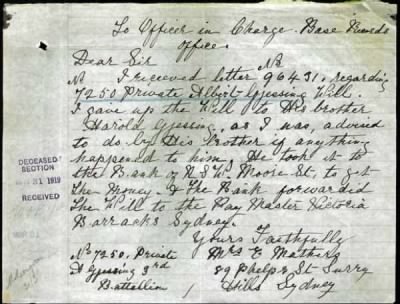 To Officer in Charge. Base Records
Office.
Dear Sir No
No I received letter 96431. regarding
7250 Private Albert Gjessing Will.
I gave up the Will to His brother
Harold Gjessing, as I was, advised
to do. by His Brother if anything
happened to him, He took it to
the Bank of N S W. Moore St, to get
the Money. & The Bank forwarded
The Will to the Pay Master Victoria
Barracks Sydney.
Yours Faithfully
Mrs E Mathers
89 Phelps St Surry
Hills Sydney
No 7250, Private
A Gjessing 3rd
Battallion
DECEASED
SECTION
31 1919
RECEIVED